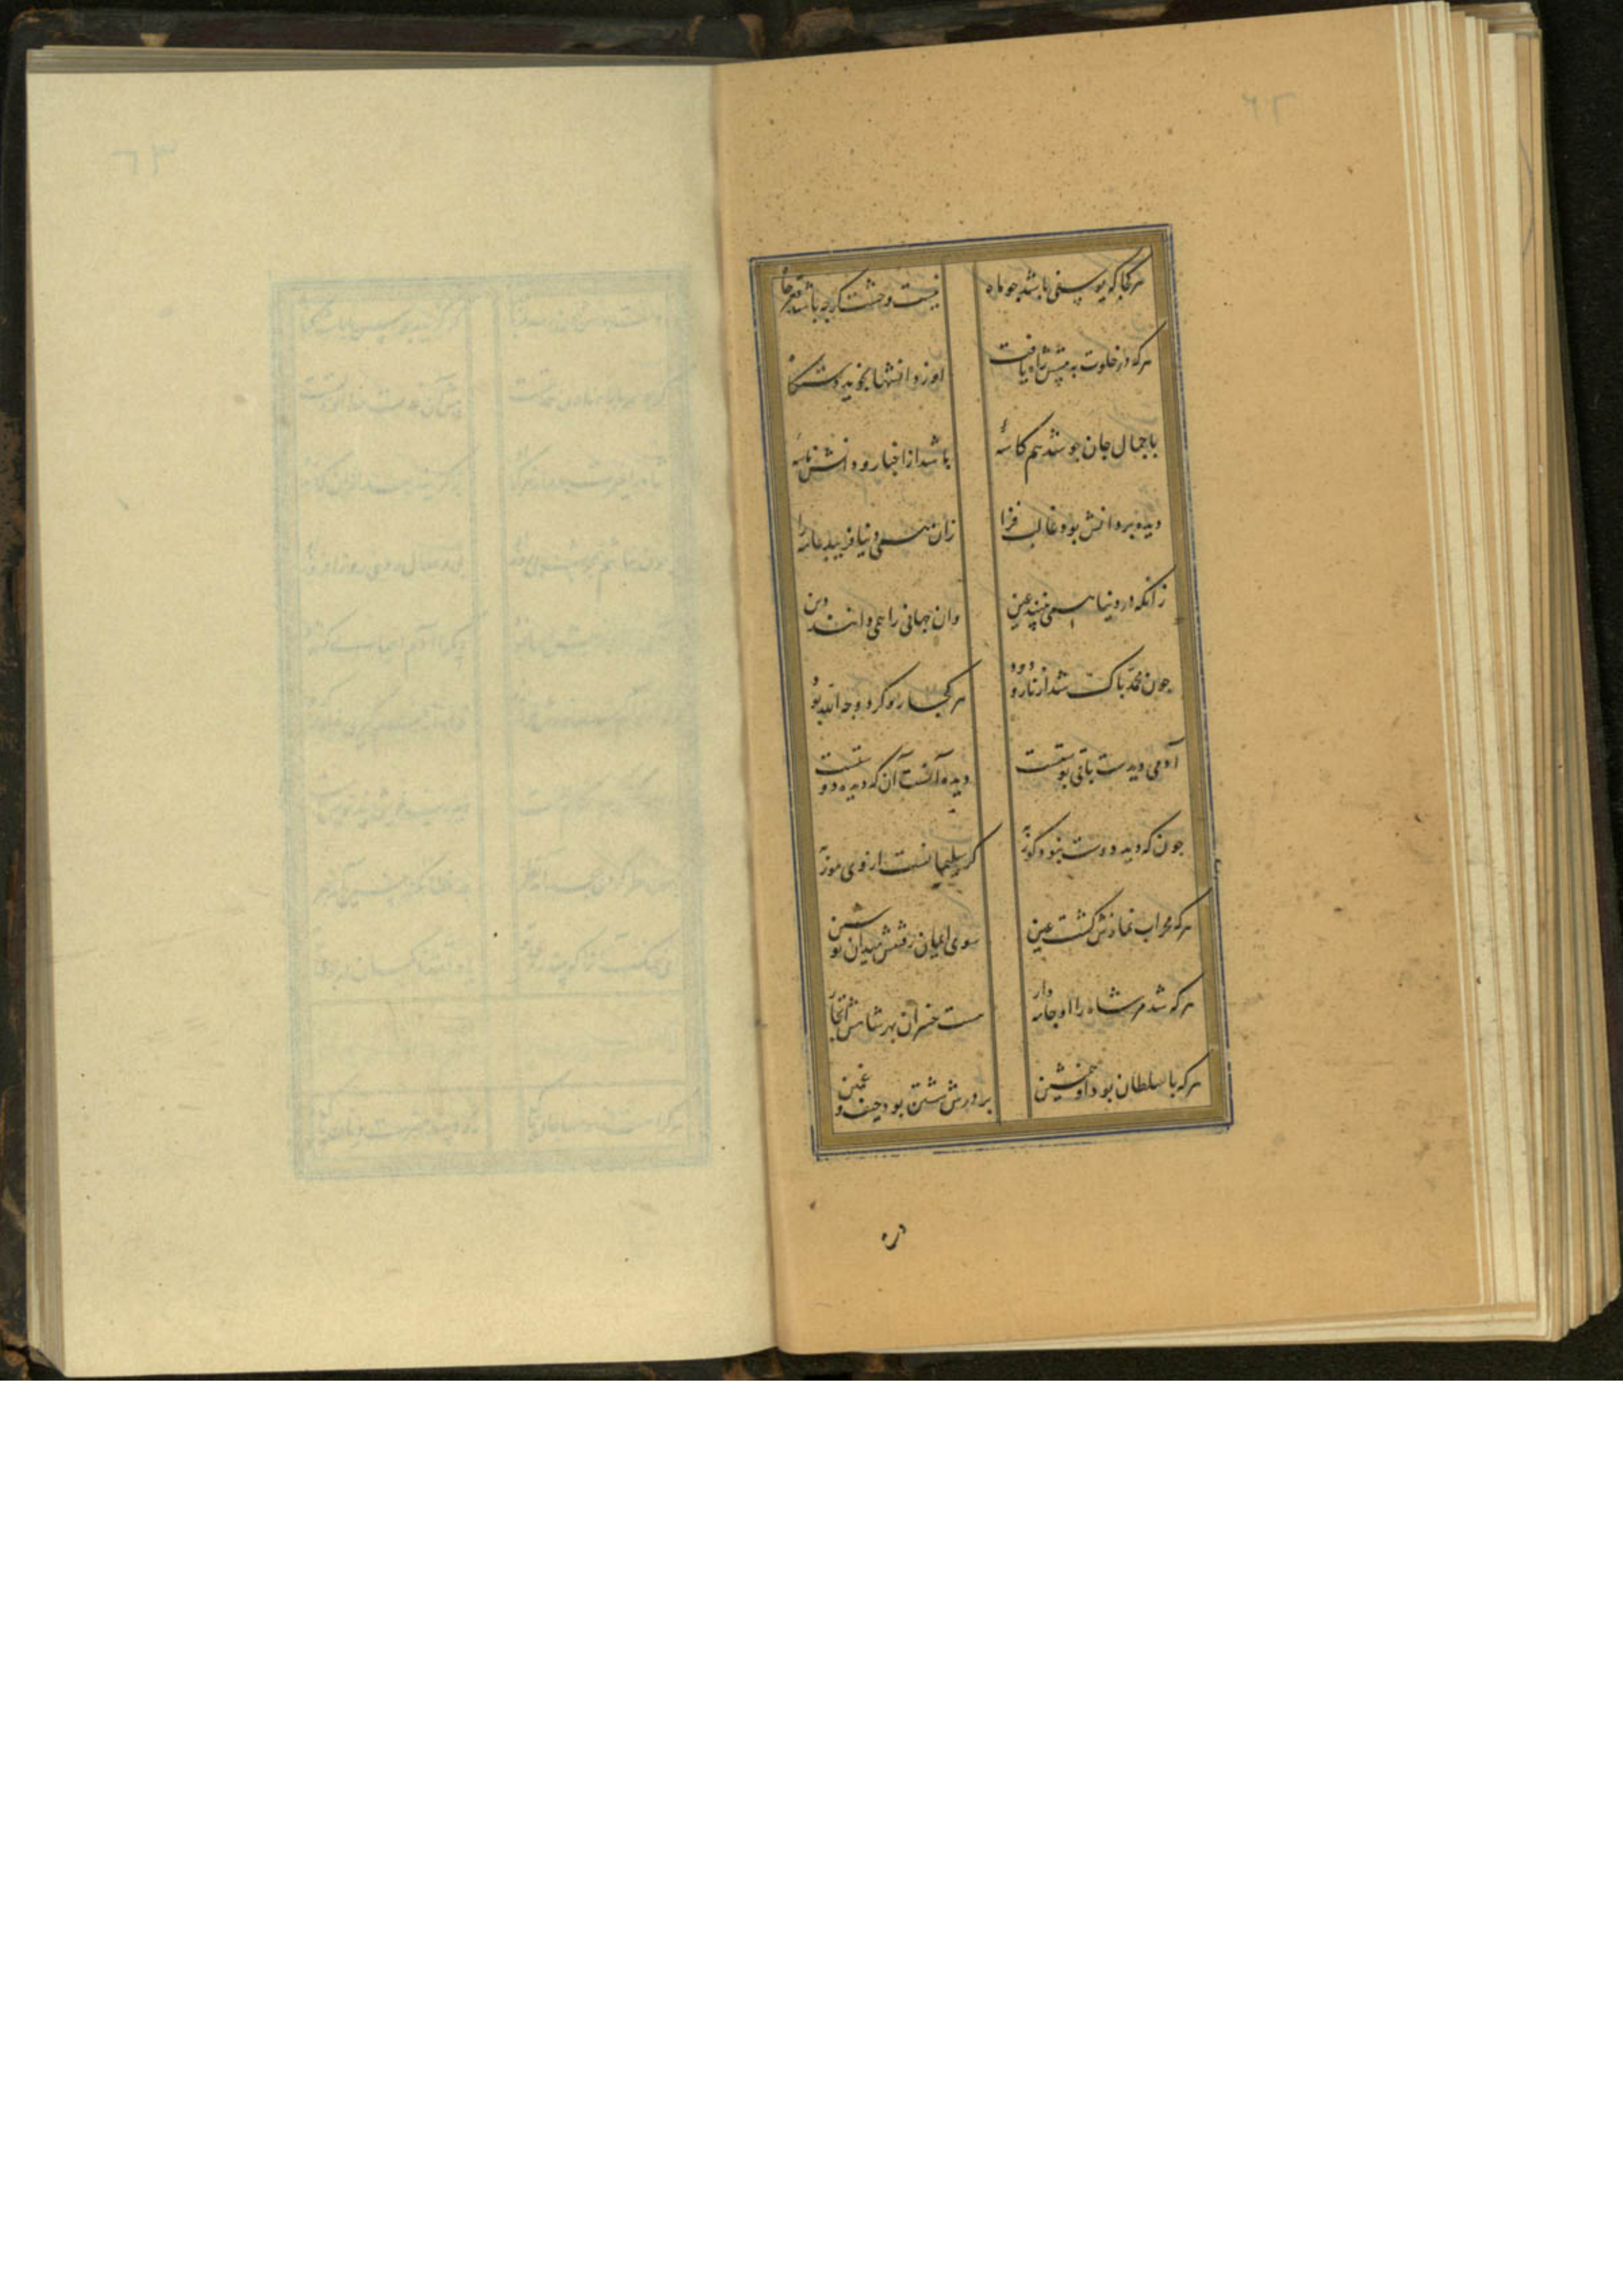 هر کجا که یوسفی باشد چو ماه
نیست وحشت گرچه باشد قعر چاه
هر که در خلوت به بینش راه یافت
او ز دانشها نجوید دستگاه
با جمال جان چو شد هم کاسهٔ
باشدش از اخبار و دانش تاسهٔ
دیده بر دانش بود غالب فرا
زان همی دنیا فریبد عامه را
زانکه در دنیا همی بینند عین
وان جهانی را همی دانند دین
چون محمد پاک شد از نار و دود
هر کجا رو کرد وجه الله بود
آدمی دیدست باقی پوستست
دیده آنست آن که دیده دوستست
چون که دید دوست نبود کور به
گر سلیمانست از وی مور به
هر که محراب نمازش گشت عین
سوی ایمان رفتنش میدان تو شین
هر که شد مر شاه را او جامه دار
هست خسران بهر شاهش اتجار
هر که با سلطان بود او همنشین
بر درش شستن بود حیف و غبین